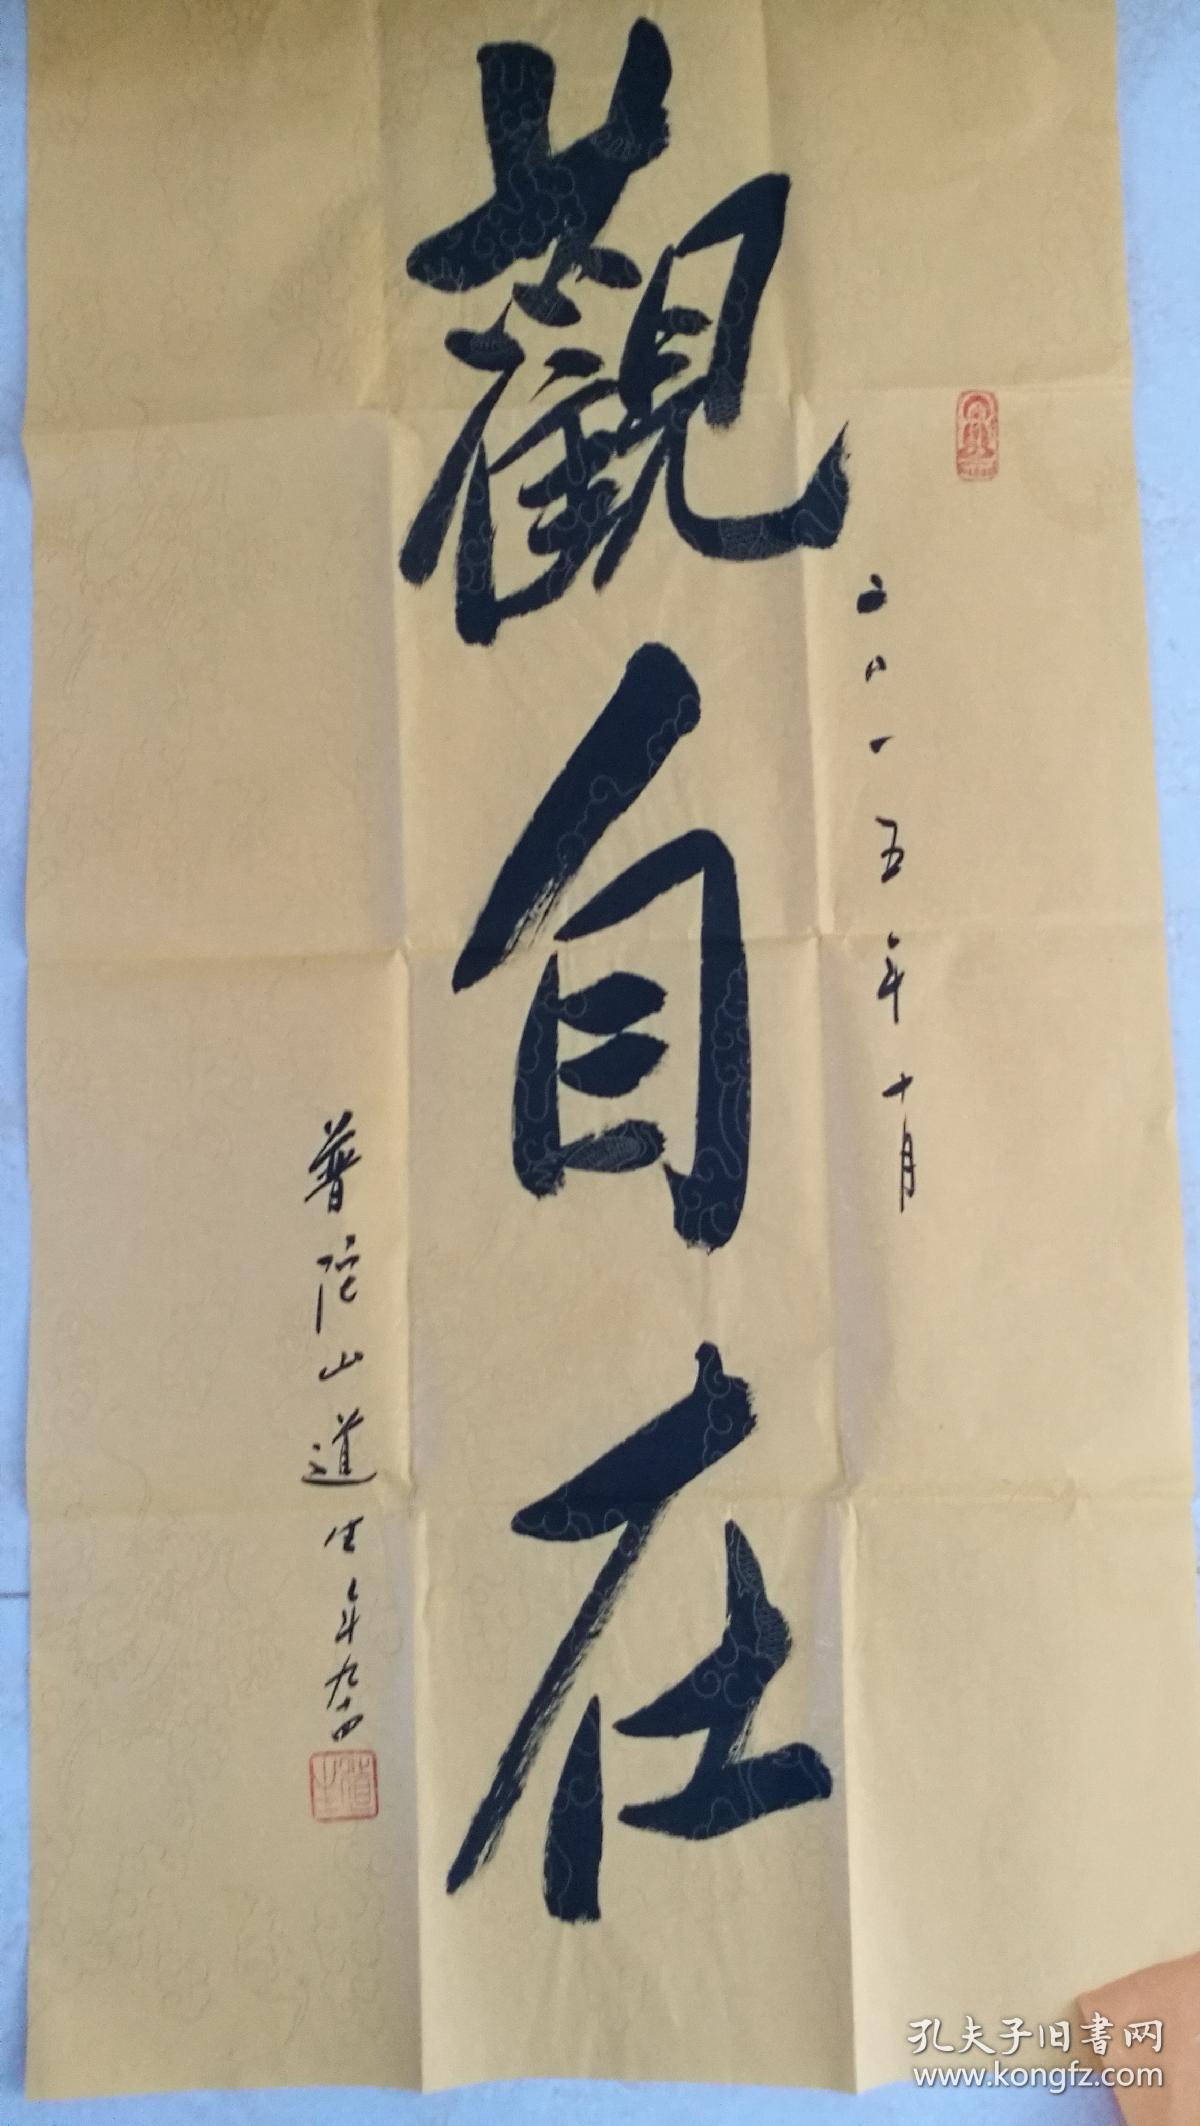 二〇一五年十月
觀自在
普陀山道生年九十四
道生
孔夫子旧書网
www.kongfz.com